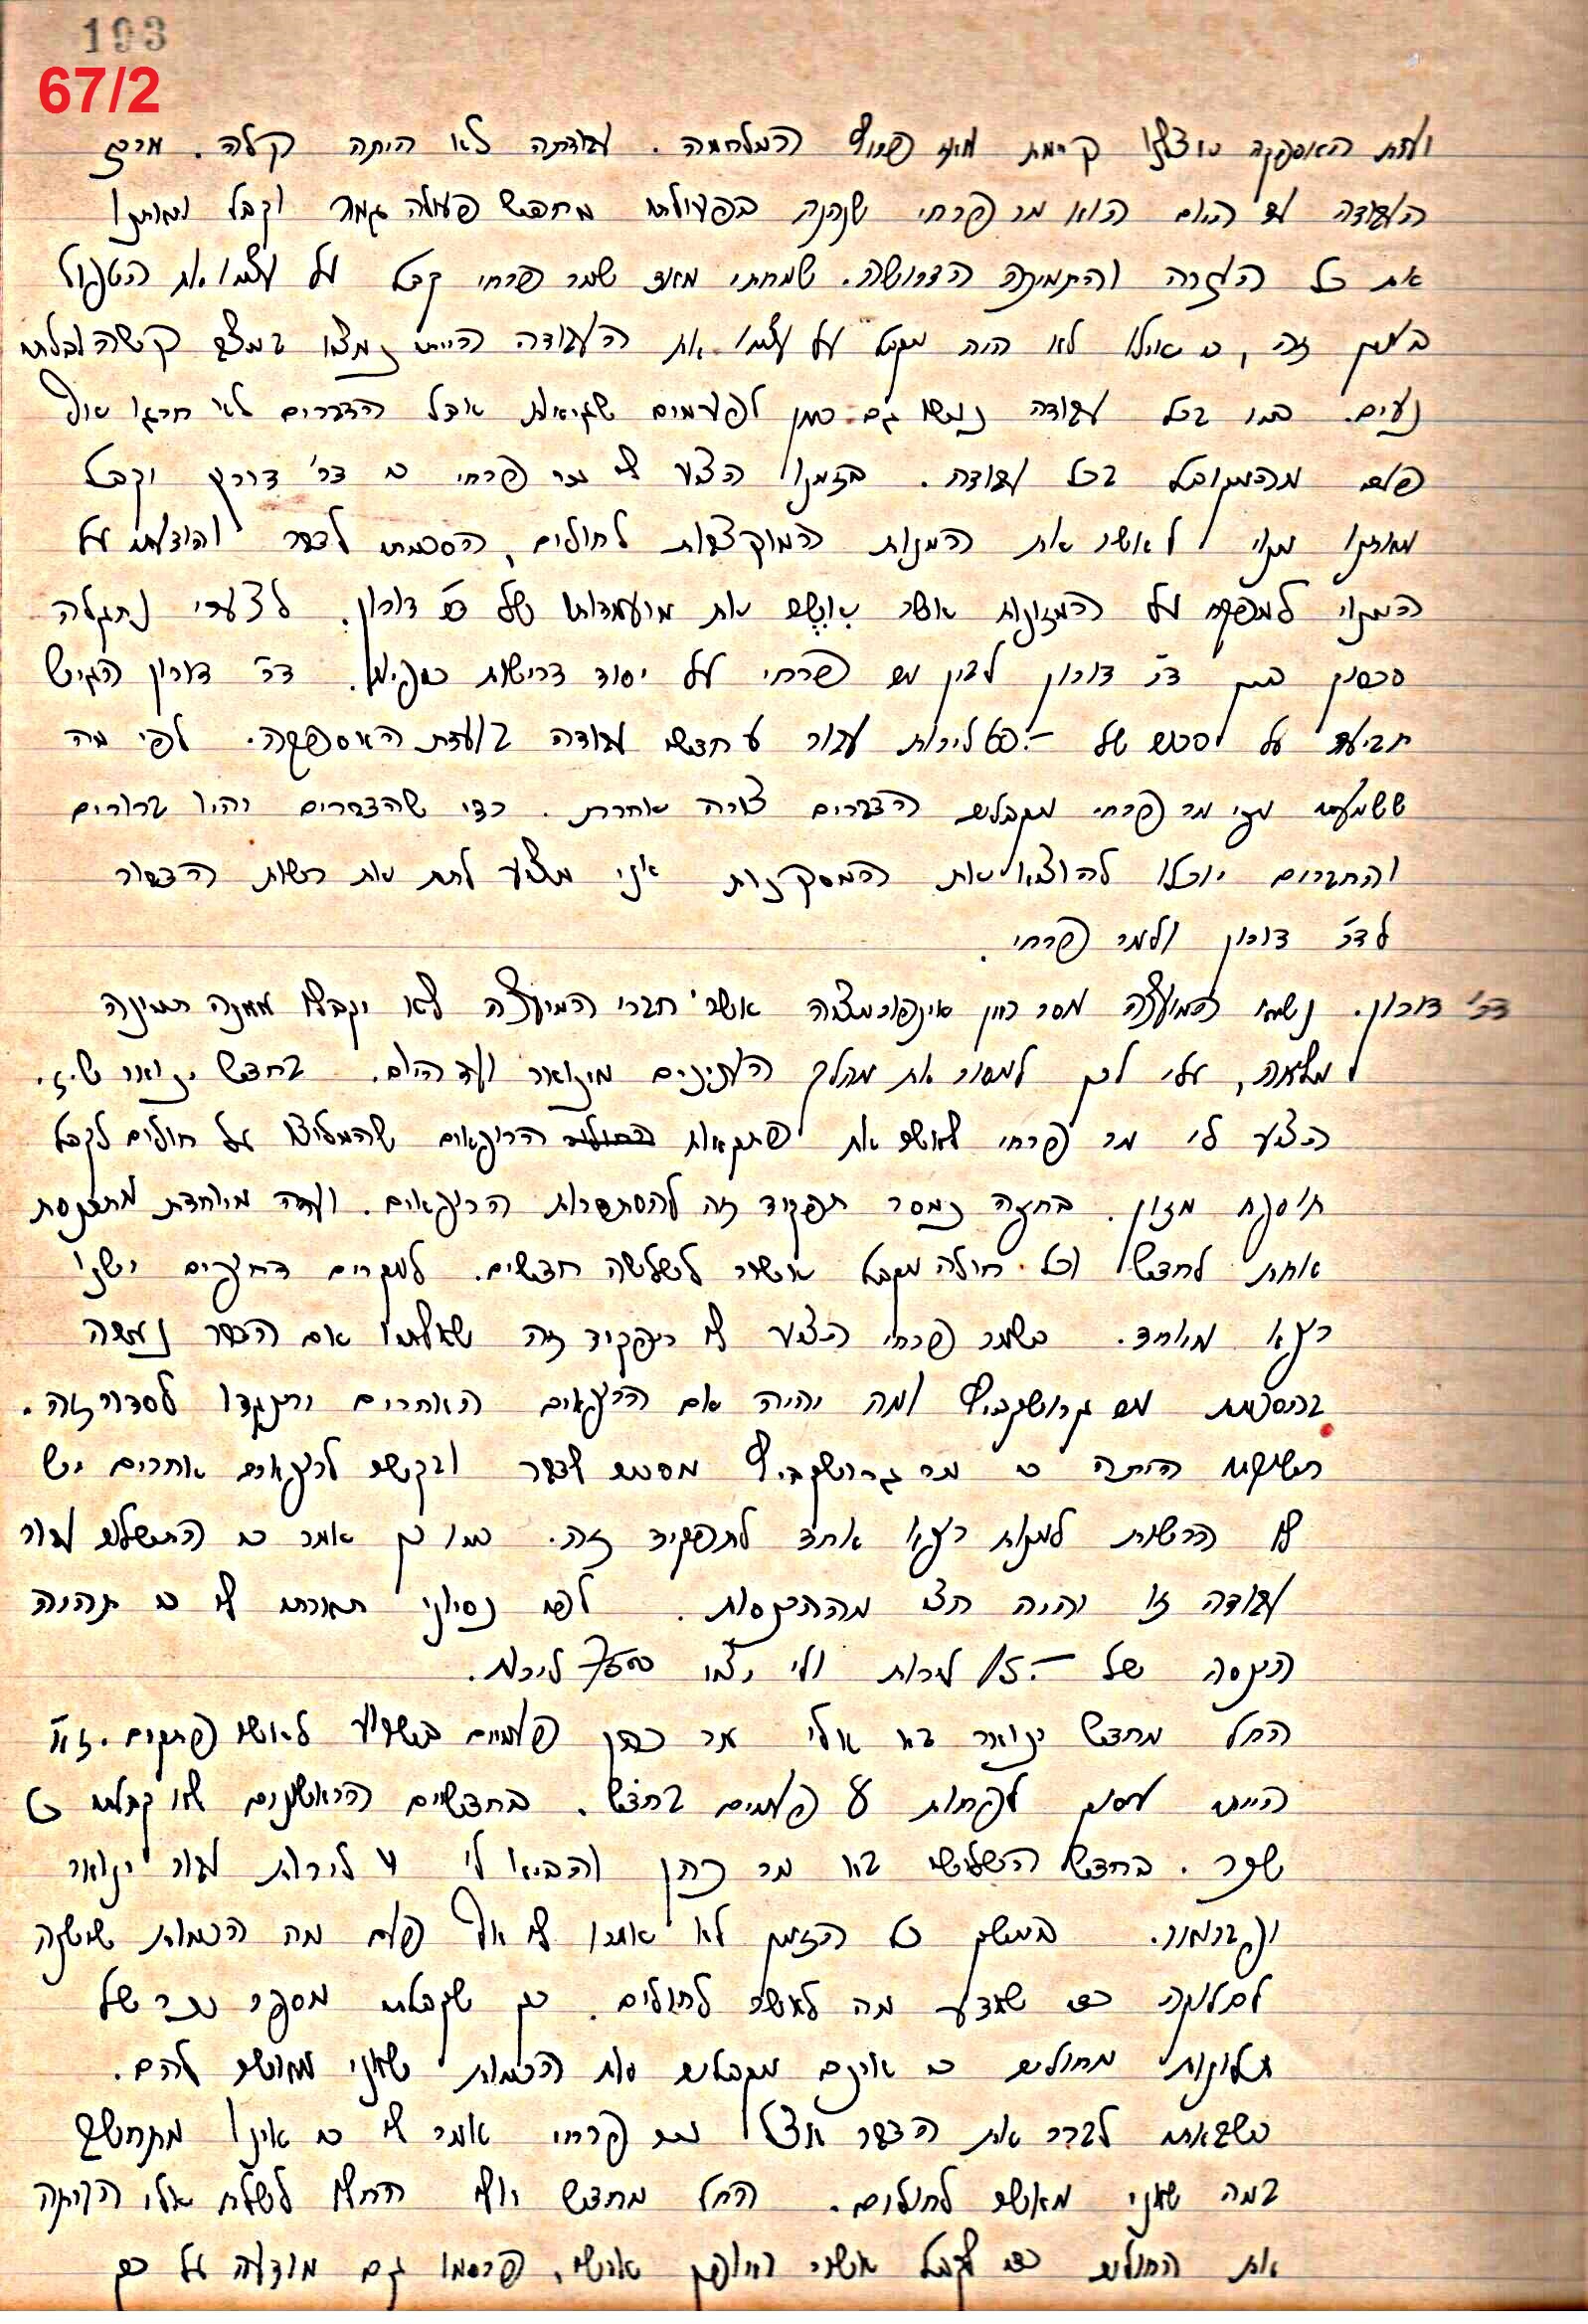 193
67/2
ועדת האספקה אצלנו קימת מאז פרוץ המלחמה. עבודתה לא היתה קלה. מרכז
העבודה עד היום הוא מר פרחי שנהנה בפעולתו מחפש פעולה גמור וקבל מאתנו
את כל העזרה והתמיכה הדרושה. שמחתי מאד שמר פרחי קבל על עצמו את הטפול
בענין זה, כי אילו לא היה מקבל על עצמו את העבודה הייתי נמצא במצב קשה ובלתי
נעים. כמו בכל עבודה נעשו גם כאן לפעמים שגיאות אבל הדברים לא חרגו אף
פעם מהמקובל בכל עבודה. בזמנו הציע לי מר פרחי כי דר' דורון יקבל
מאתנו מנוי לאשר את המנות המוקצבות לחולים, הסכמתי לדבר והודעתי על
המנוי למפקח על המזונות אשר אִשֵׁר את מועמדותו של ד"ר דורון. לצערי נתגלה
סכסוך בין ד"ר דורון לבין מר פרחי על יסוד דרישות כספיות. ד"ר דורון הגיש
תביעה על סכום של -.60 לירות עבור 8 חדשי עבודה בועדת האספקה. לפי מה
ששמעתי מפי מר פרחי מקבלים הדברים צורה אחרת. כדי שהדברים יהיו ברורים
והחברים יוכלו להוציא את המסקנות אני מציע לתת את רשות הדבור
לד"ר דורון ולמר פרחי.
דר' דורון. נשיא המועצה מסר כאן אינפורמציה אשר חברי המועצה לא יקבלו ממנה תמונה
מלאה, עלי לכן למסור את מהלך הענינים מינואר ועד היום. בחדש ינואר ש.ז.
הציע לי מר פרחי לאשר את פתקאות הרופאים שהמליצו על חולים לקבל
תוספת מזון. בחיפה נמסר תפקיד זה להסתדרות הרופאים. ועדה מיוחדת מתכנסת
אחת לחדש וכל חולה מקבל אשור לשלשה חדשים. למקרים דחופים ישנו
רופא מיוחד. כשמר פרחי הציע לי תפקיד זה שאלתיו אם הדבר נעשה
בהסכמת מר גרושקביץ ומה יהיה אם הרופאים האחרים יתנגדו לסדור זה.
תשובתו היתה כי מר גרושקביץ מסכים לדבר ובקשר לרופאים אחרים יש
לו הרשות למנות רופא אחד לתפקיד זה. כמו כן אמר כי התשלום עבור
עבודה זו יהיה חצי מההכנסות. לפי נסיוני תארתי לי כי תהיה
הכנסה של -.15 לירות ולי יצא 7500 לירות.
החל מחדש ינואר בא אלי מר כהן פעמיים בשבוע לאשר פתקים. ז"א
הייתי עסוק לפחות 8 פעמים בחדש. בחדשים הראשונים לא קבלתי כל
שכר. בחדש השלישי בא מר כהן והביא לי 4 לירות עבור ינואר
ופברואר. במשך כל הזמן לא אמרו לי אף פעם מה הכמות שישנה
לחלוקה כדי שאדע מה לאשר לחולים. כך שקבלתי מספר נכר של
תלונות מחולים כי אינם מקבלים את הכמות שאני מאשר להם.
כשבאתי לברר את הדבר אצל מר פרחי אמר לי כי אינו מתחשב
במה שאני מאשר לחולים. החל מחדש יולי החלו לשלח אלי הביתה
את החולים כדי לקבל אשור באופן אישי, פרסמו גם מודעה על כך